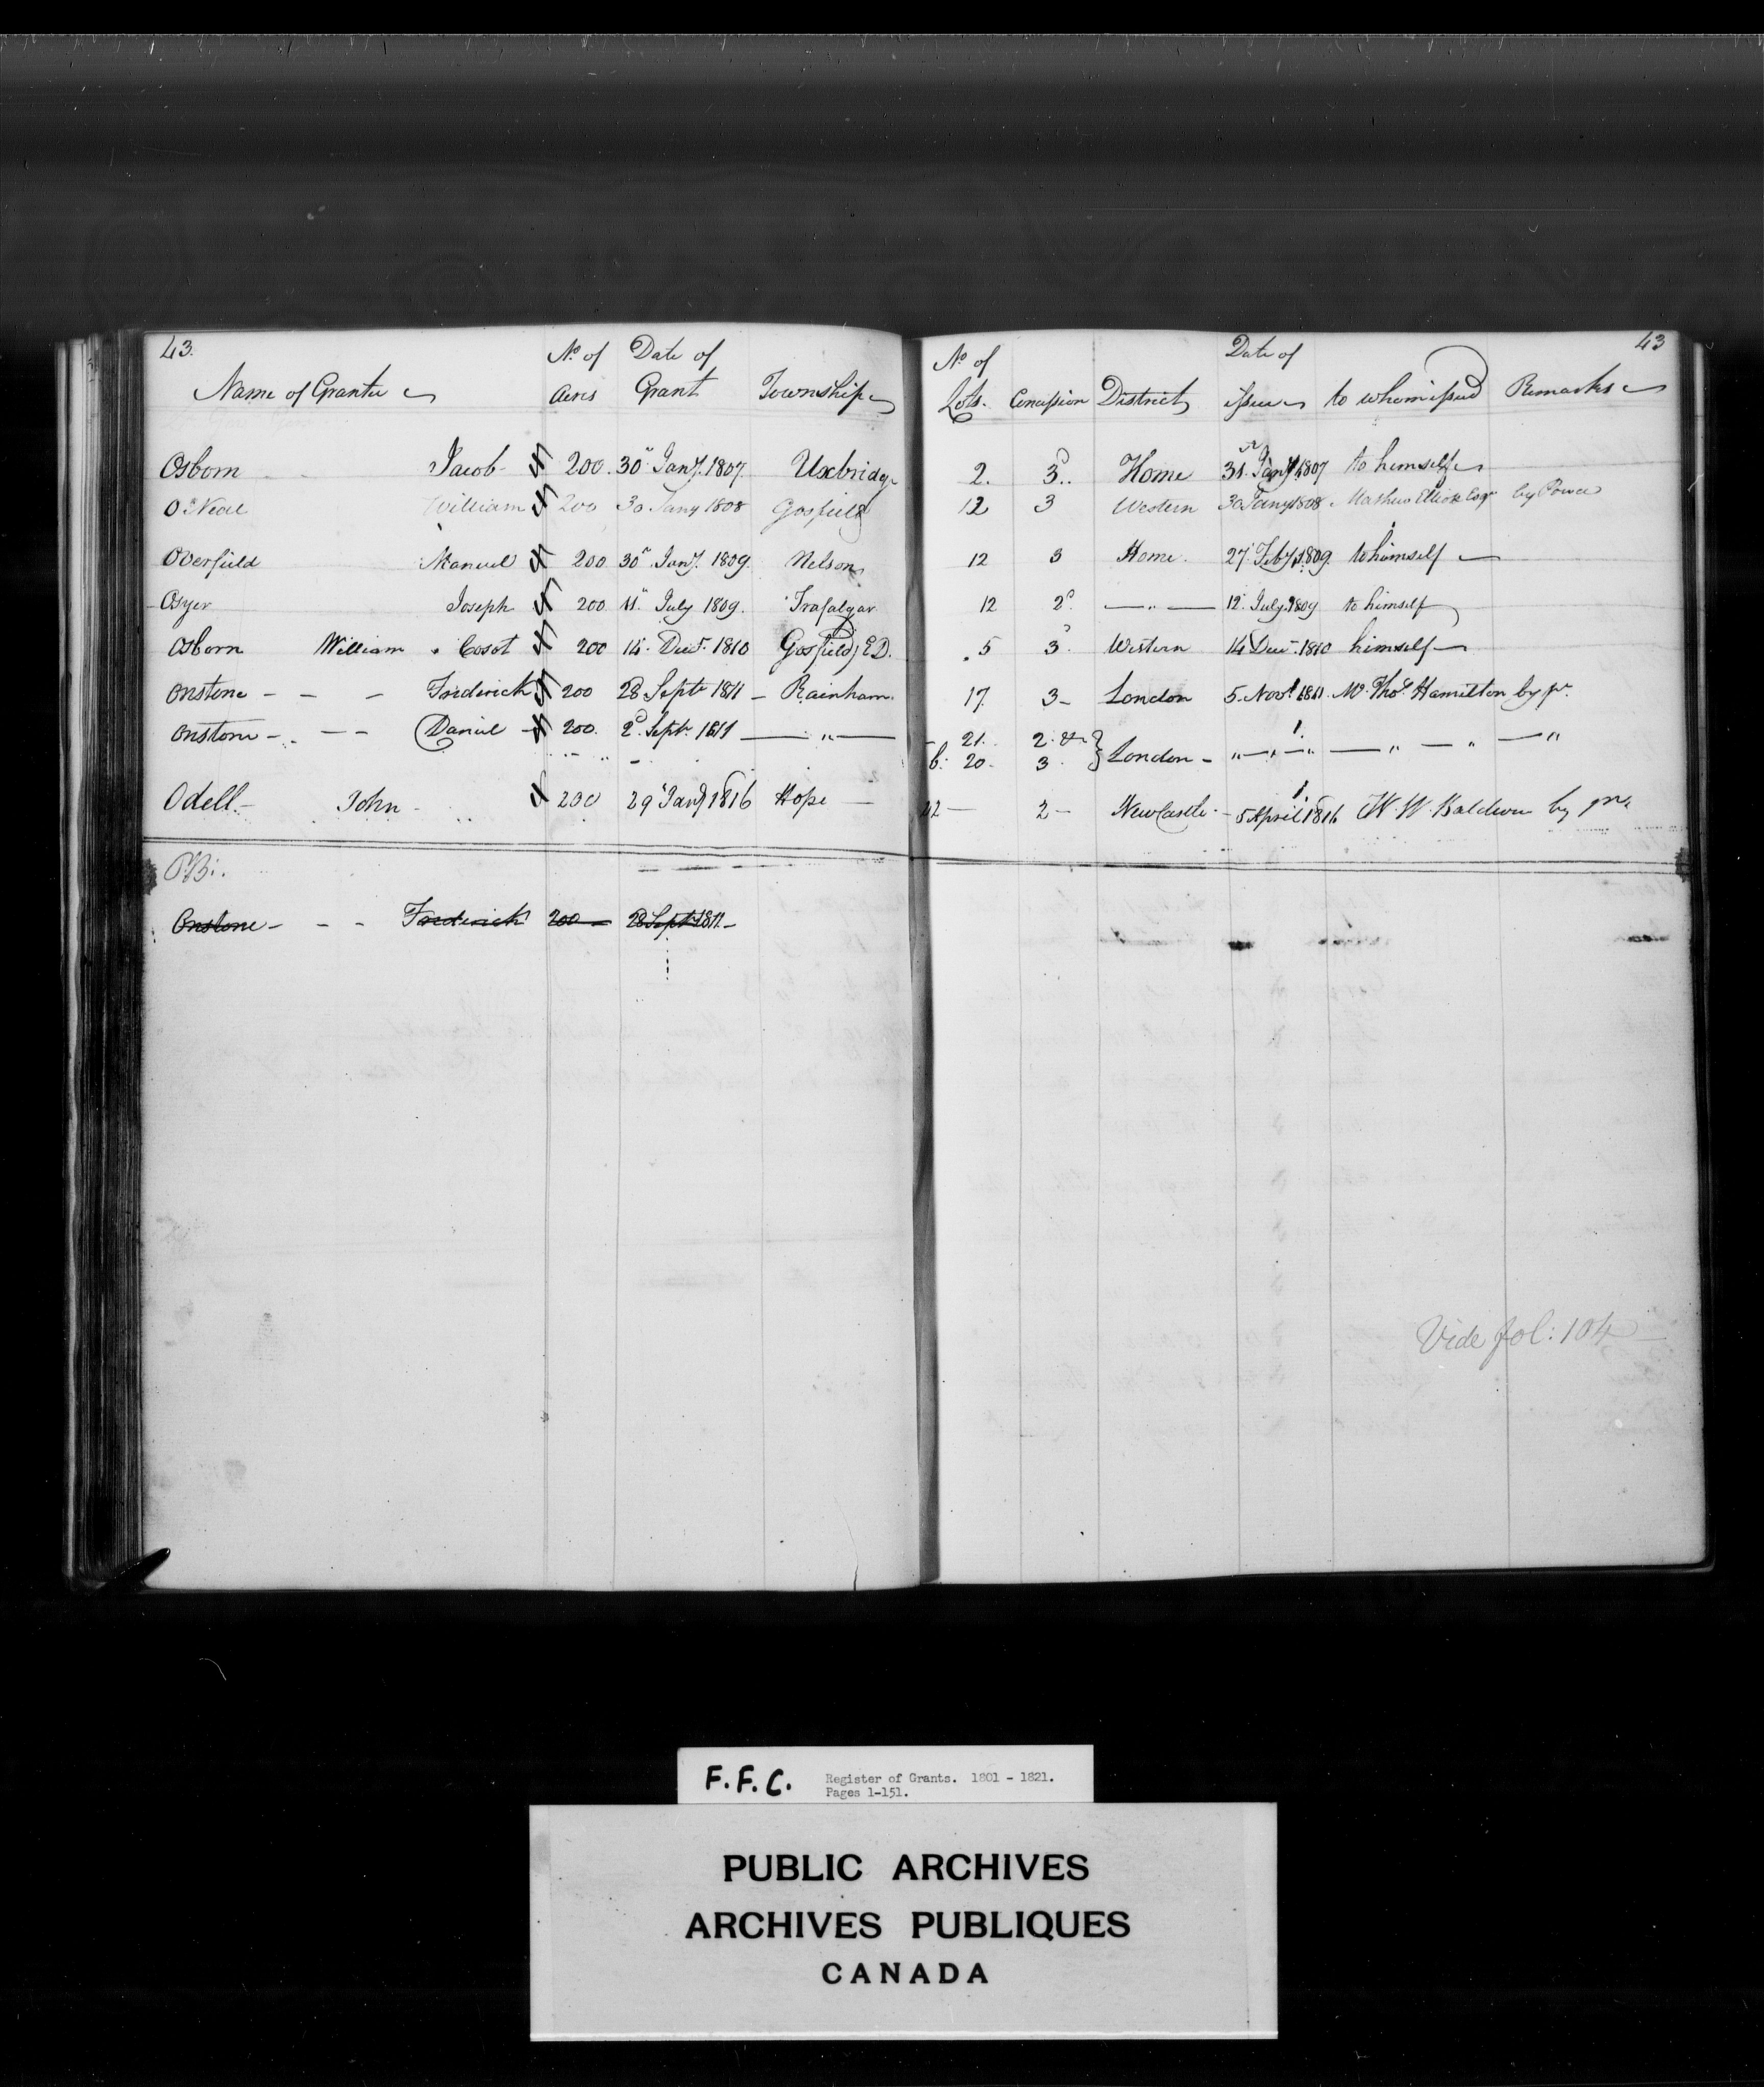 43. 43
Name of Grantee No. of Acres Date of Grant Township No. of Lots. Concession District Date of issue to whom issued Remarks
Osborn Jacob 200. 30th Jany. 1807. Uxbridge 2. 3d.. Home 31st Jany 1807 to himself
O'Neal William 200 30 Jany 1808 Gosfield 12 3 Western 30 Jany 1808. Mathew Elliott Esqr by Power
Overfield Manuel 200 30th Jany. 1809. Nelson 12 3 Home. 27. Feby. 1809. to himself
Osyer Joseph 200 11th July 1809. Trafalgar 12 2d. — " — 12. July 1809 to himself
Osborn William Cosot 200 14. Decr. 1810 Gosfield, E D. 5 3d. Western 14 Decr. 1810 himself
Onstone - - - Frederick 200 28 Septr 1811 - Rainham. 17. 3 - London 5. Novr 1811. Mr. Thos. Hamilton by pr.
Onstone - - - Daniel 200. 2d. Septr. 1811 — " — 21. 2. &
b. 20. 3. } London - " — " — " — " — " — "
Odell - John - 200 29 Jany 1816 Hope — 22 — 2 - NewCastle - 5 April 1816 W. W. Baldwin by pr.
Onstone - - - Frederick 200 28 Septr 1811. -
Vide fol: 104
F.F.C. Register of Grants. 1801 - 1821.
Pages 1-151.
PUBLIC ARCHIVES
ARCHIVES PUBLIQUES
CANADA